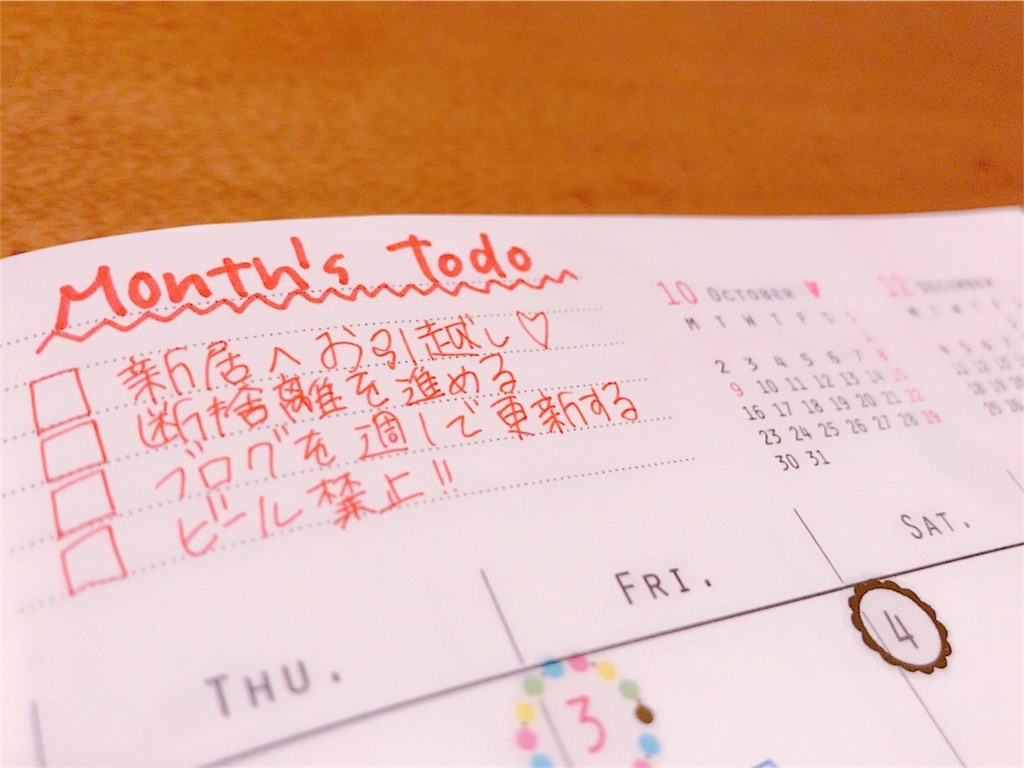 Month's Todo
新居へお引越し♡
断捨離を進める
ブログを週1で更新する
ビール禁止!!
10 OCTOBER
M T W T F S S
1
2 3 4 5 6 7 8
9 10 11 12 13 14 15
16 17 18 19 20 21 22
23 24 25 26 27 28 29
30 31
12 DECEMBER
M T W T
4 5 6
11 12 13
18 19 20
25 26
THU.
FRI.
SAT.
3
4